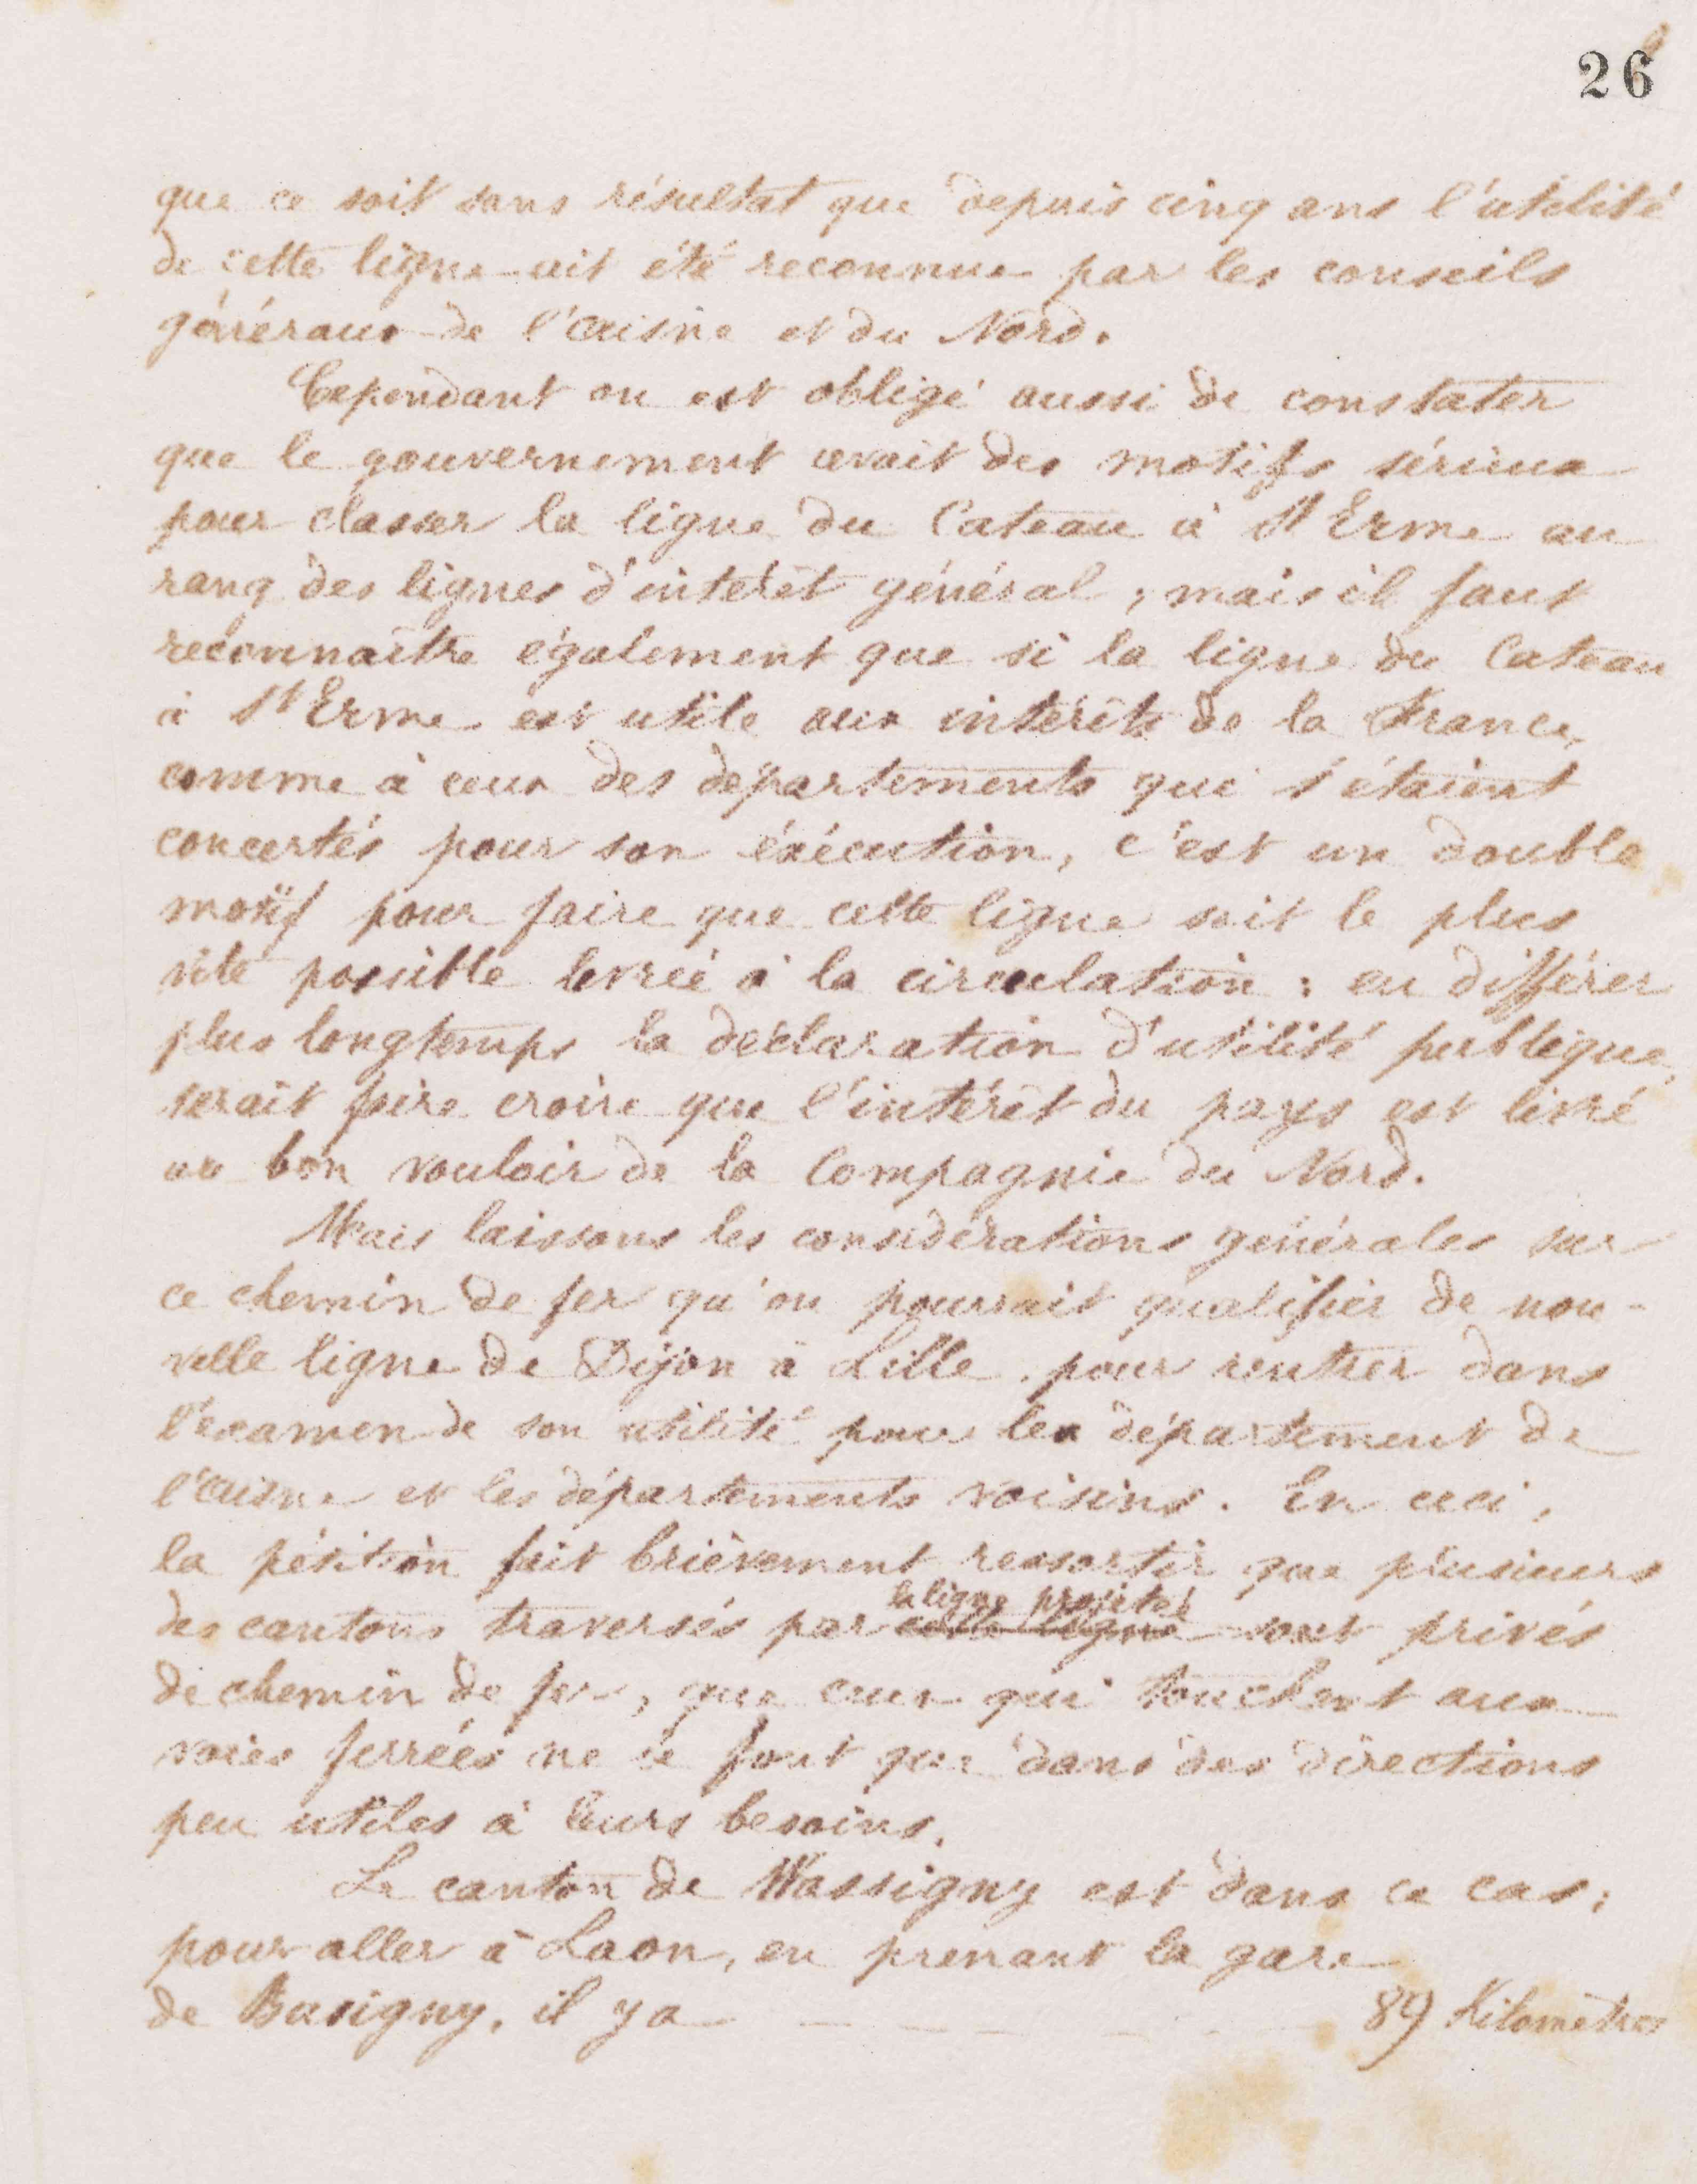 26
que ce soit sans résultat que depuis cinq ans l'utilité
de cette ligne ait été reconnue par les conseils
généraux de l'Aisne et du Nord.
Cependant on est obligé aussi de constater
que le gouvernement avait des motifs sérieux
pour classer la ligne du Cateau à St Erme au
rang des lignes d'intérêt général ; mais il faut
reconnaître également que si la ligne du Cateau
à St Erme est utile aux intérêts de la France,
comme à ceux des départements qui s'étaient
concertés pour son éxécution, c'est un double
motif pour faire que cette ligne soit le plus
vite possible livrée à la circulation : en différer
plus longtemps la déclaration d'utilité publique,
serait faire croire que l'intérêt du pays est livré
au bon vouloir de la Compagnie du Nord.
Mais laissons les considérations générales sur
ce chemin de fer qu'on pourrait qualifier de nou-
velle ligne de Dijon à Lille, pour rentrer dans
l'examen de son utilité pour le département de
l'Aisne et les départements voisins. En ceci,
la pétition fait brièvement ressortir que plusieurs
la ligne projetée
des cantons traversés par cette ligne sont privés
de chemin de fer, que ceux qui touchent aux
voies ferrées ne le font que dans des directions
peu utiles à leurs besoins.
Le canton de Wassigny est dans ce cas ;
pour aller à Laon, en prenant la gare
de Busigny, il y a - - - - - - 89 Kilomètres